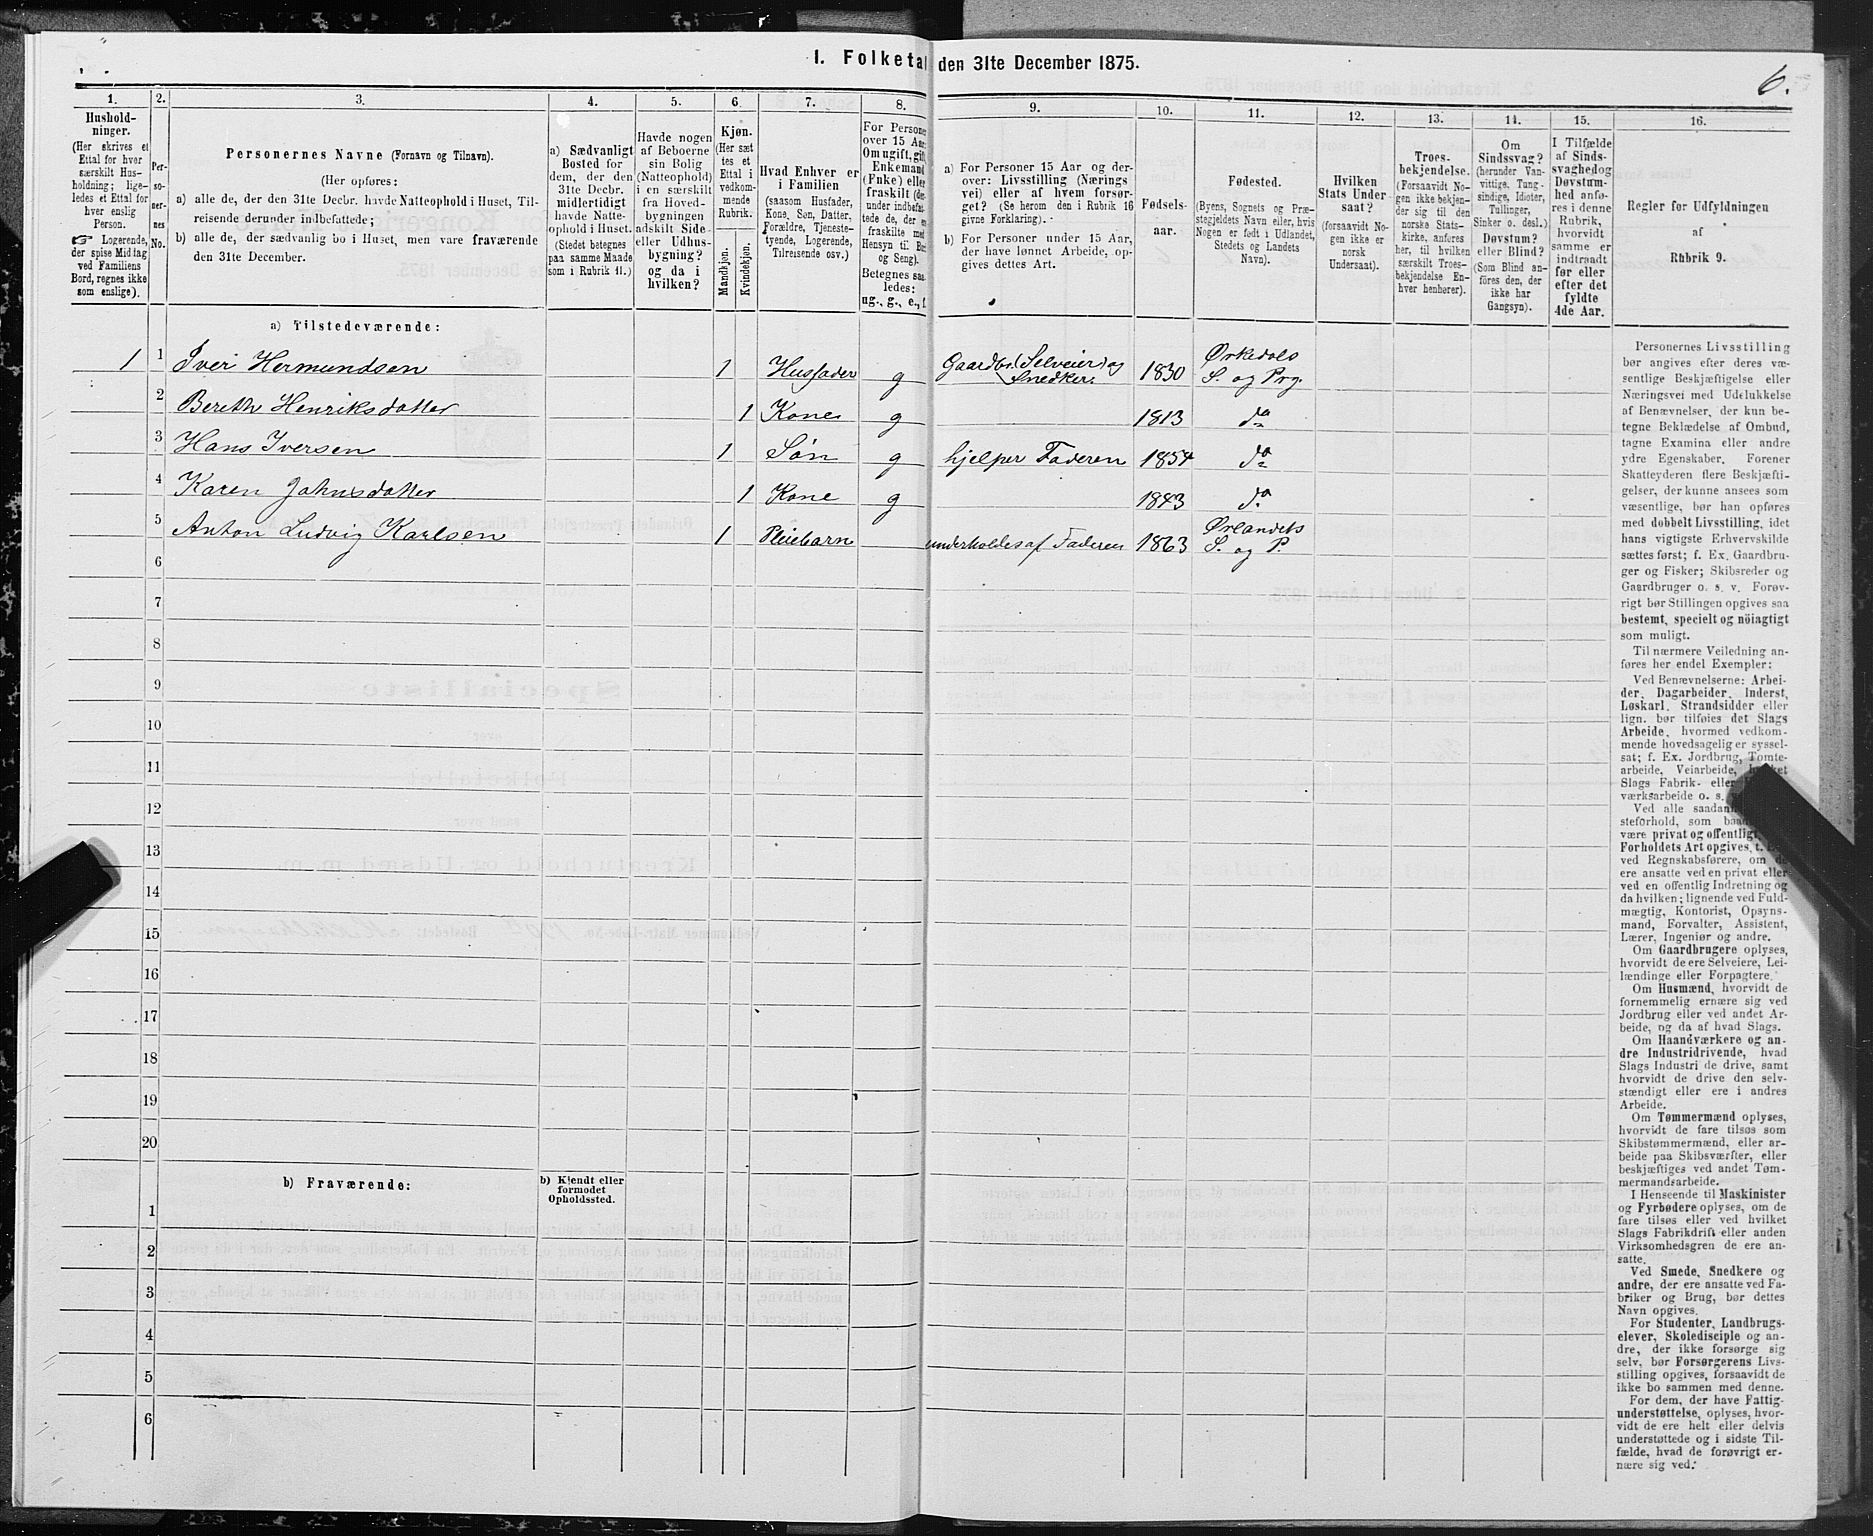 I. Folketal den 31te December 1875.
6.
1.
Hushold-
ninger.
(Her skrives et
Ettal for hver
særskilt Hus-
holdning; lige-
ledes et Ettal for
hver enslig
Person.
☞ Logerende,
der spise Middag
ved Familiens
Bord, regnes ikke
som enslige).
2.
Per-
so-
ner-
nes
No.
3.
Personernes Navne (Fornavn og Tilnavn).
(Her opføres:
a) alle de, der den 31te Decbr. havde Natteophold i Huset, Til-
reisende derunder indbefattede;
b) alle de, der sædvanlig bo i Huset, men vare fraværende
den 31te December.
4.
a) Sædvanligt
Bosted for
dem, der den
31te Decbr.
midlertidigt
havde Natte-
ophold i Huset.
(Stedet betegnes
paa samme Maade
som i Rubrik 11.)
5.
Havde nogen
af Beboerne
sin Bolig
(Natteophold)
i en særskilt
fra Hoved-
bygningen
adskilt Side-
eller Udhus-
bygning?
og da i
hvilken?
6.
Kjøn.
(Her sæt-
tes et
Ettal i
vedkom-
mende
Rubrik.
Mandkjøn.
Kvindekjøn.
7.
Hvad Enhver er
i Familien
(saasom Husfader,
Kone, Søn, Datter,
Forældre, Tjeneste-
tyende, Logerende,
Tilreisende osv.)
8.
For Personer
over 15 Aar:
Om ugift, gift,
Enkemand
(Enke) eller
fraskilt (der-
under indbefat-
tede de, der ere
fraskilte med
Hensyn til Bord
og Seng).
Betegnes saa-
ledes:
ug., g., e., f.
9.
a) For Personer 15 Aar og der-
over: Livsstilling (Nærings-
vei) eller af hvem forsør-
get? (Se herom den i Rubrik 16
givne Forklaring).
b) For Personer under 15 Aar,
der have lønnet Arbeide, op-
gives dettes Art.
10.
Fødsels-
aar.
11.
Fødested.
(Byens, Sognets og Præ-
stegjeldets Navn eller, hvis
Nogen er født i Udlandet,
Stedets og Landets
Navn).
12.
Hvilken
Stats Under-
saat?
(forsaavidt No-
gen ikke er
norsk
Undersaat).
13.
Troes-
bekjendelse.
(Forsaavidt No-
gen ikke bekjen-
der sig til den
norske Stats-
kirke, anføres
her, til hvilken
særskilt Troes-
bekjendelse En-
hver henhører).
14.
Om
Sindssvag?
(herunder Van-
vittige, Tung-
sindige, Idioter,
Tullinger,
Sinker o. desl.)
Døvstum?
eller Blind?
(Som Blind an-
føres den, der
ikke har
Gangsyn).
15.
I Tilfælde
af Sinds-
svaghed og
Døvstum-
hed anfø-
res i denne
Rubrik,
hvorvidt
samme er
indtraadt
før eller
efter det
fyldte
4de Aar.
16.
Regler for Udfyldningen
af
Rubrik 9.
a) Tilstedeværende:
1 1 Iver Hermundsen 1 Husfader g Gaardbr. (Selveier) og Snedker. 1830 Ørkedals S. og Prg.
2 Bereth Henriksdatter 1 Kone g 1813 do
3 Hans Iversen 1 Søn g hjelper Faderen 1854 do
4 Karen Johnsdatter 1 Kone g 1843 do
5 Anton Ludvig Karlsen 1 Pleiebarn underholdes af Faderen 1863 Ørlandets S. og P.
6
7
8
9
10
11
12
13
14
15
16
17
18
19
20
b) Fraværende:
b) Kjendt eller
formodet
Opholdssted.
1
2
3
4
5
6
Personernes Livsstilling
bør angives efter deres væ-
sentlige Beskjæftigelse eller
Næringsvei med Udelukkelse
af Benævnelser, der kun be-
tegne Beklædelse af Ombud,
tagne Examina eller andre
ydre Egenskaber. Forener
Skatteyderen flere Beskjæfti-
gelser, der kunne ansees som
væsentlige, bør han opføres
med dobbelt Livsstilling, idet
hans vigtigste Erhvervskilde
sættes først; f. Ex. Gaardbru-
ger og Fisker; Skibsreder og
Gaardbruger o. s. v. Forøv-
rigt bør Stillingen opgives saa
bestemt, specielt og nöiagtigt
som muligt.
Til nærmere Veiledning an-
føres her endel Exempler:
Ved Benævnelserne: Arbei-
der, Dagarbeider, Inderst,
Løskarl, Strandsidder eller
lign. bør tilføies det Slags
Arbeide, hvormed vedkom-
mende hovedsagelig er syssel-
sat; f. Ex. Jordbrug, Tomte-
arbeide, Veiarbeide, hvilket
Slags Fabrik- eller
værksarbeide o. s.
Ved alle saadan
steforhold, som baa
være privat og offentligt,
Forholdets Art opgives, t. E
ved Regnskabsførere, om de
ere ansatte ved en privat eller
ved en offentlig Indretning og
da hvilken; lignende ved Fuld-
mægtig, Kontorist, Opsyns-
mand, Forvalter, Assistent,
Lærer, Ingeniør og andre.
Om Gaardbrugere oplyses,
hvorvidt de ere Selveiere, Lei-
lændinge eller Forpagtere.
Om Husmænd, hvorvidt de
fornemmelig ernære sig ved
Jordbrug eller ved andet Ar-
beide, og da af hvad Slags.
Om Haandværkere og an-
dre Industridrivende, hvad
Slags Industri de drive, samt
hvorvidt de drive den selv-
stændigt eller ere i andres
Arbeide.
Om Tømmermænd oplyses,
hvorvidt de fare tilsøs som
Skibstømmermænd, eller ar-
beide paa Skibsværfter, eller
beskjæftiges ved andet Tøm-
mermandsarbeide.
I Henseende til Maskinister
og Fyrbødere oplyses, om de
fare tilsøs eller ved hvilket
Slags Fabrikdrift eller anden
Virksomhedsgren de ere an-
satte.
Ved Smede, Snedkere og
andre, der ere ansatte ved Fa-
briker og Brug, bør dettes
Navn opgives.
For Studenter, Landbrugs-
elever, Skoledisciple og an-
dre, der ikke forsørge sig
selv, bør Forsørgerens Livs-
stilling opgives, forsaavidt de
ikke bo sammen med denne.
For dem, der have Fattig-
understøttelse, oplyses, hvor-
vidt de ere helt eller delvis
understøttede og i sidste Til-
fælde, hvad de forøvrigt er-
nære sig ved.